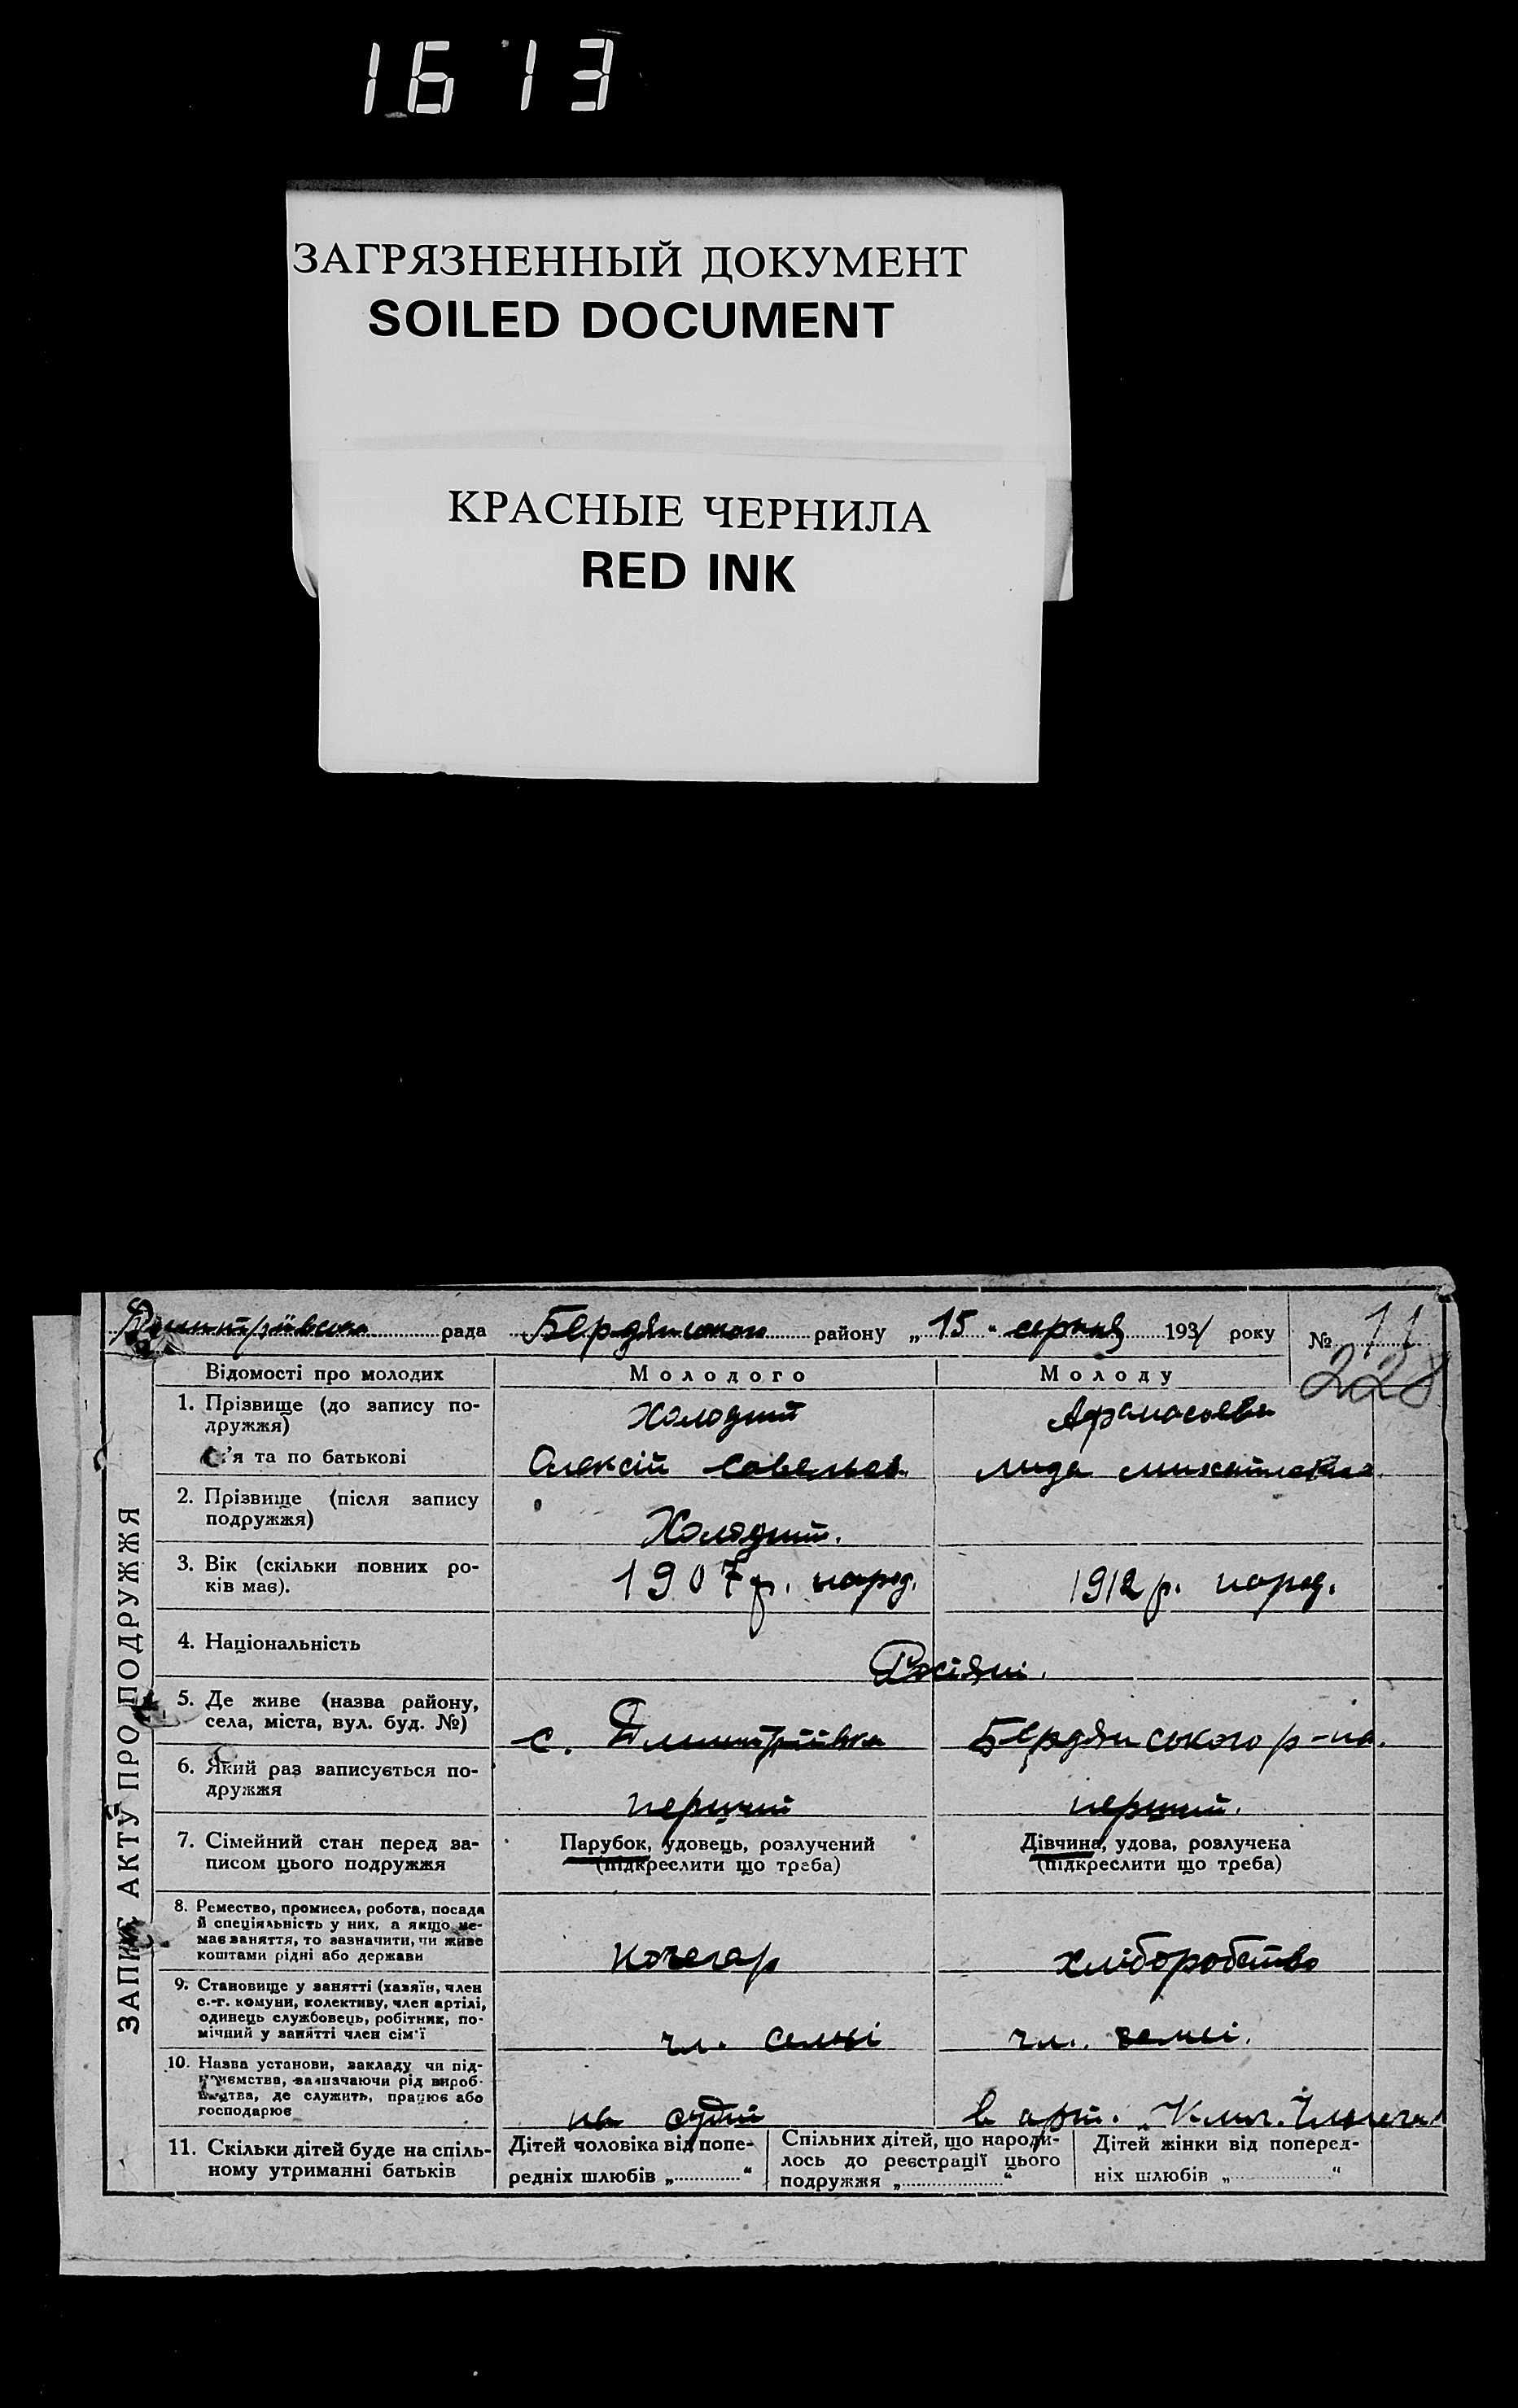 1613
ЗАГРЯЗНЕННЫЙ ДОКУМЕНТ
SOILED DOCUMENT
КРАСНЫЕ ЧЕРНИЛА
RED INK
Дмитрівська рада Бердянського району „15“ серпня 1931 року № 11
228
ЗАПИС АКТУ ПРО ПОДРУЖЖЯ
Відомості про молодих Молодого Молоду
1. Прізвище (до запису по-
дружжя) Холодний Афанасьєва
ім'я та по батькові Олексій Савельев. Лида Михайловна
2. Прізвище (після запису
подружжя) Холодний.
3. Вік (скільки повних ро-
ків має). 1907 р. народ. 1912 р. народ.
4. Національність Росіяни.
5. Де живе (назва району,
села, міста, вул. буд. №) с. Дмитрівка Бердянського р-на.
6. Який раз записується по-
дружжя перший перший.
7. Сімейний стан перед за-
писом цього подружжя
Парубок, удовець, розлучений
(підкреслити що треба)
Дівчина, удова, розлучена
(підкреслити що треба)
8. Ремество, промисел, робота, посада
й спеціяльність у них, а якщо не-
має заняття, то зазначити, чи живе
коштами рідні або держави кочегар хліборобство
9. Становище у занятті (хазяїн, член
с.-г. комуни, колективу, член артілі,
одинець службовець, робітник, по-
мічний у занятті член сім'ї чл. семьі чл. семьі.
10. Назва установи, закладу чи під-
приємства, зазначаючи рід вироб-
ництва, де служить, працює або
господарює на судні в арт. Ілліча
11. Скільки дітей буде на спіль-
ному утриманні батьків
Дітей чоловіка від попе-
редніх шлюбів „ “
Спільних дітей, що народи-
лось до реєстрації цього
подружжя „ “
Дітей жінки від поперед-
ніх шлюбів „ “